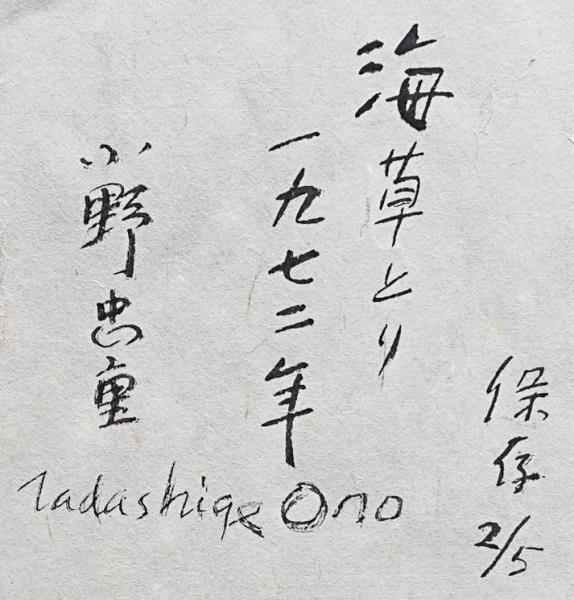 海草とり
一九七二年
小野忠重
Tadashige Ono
保存
2/5